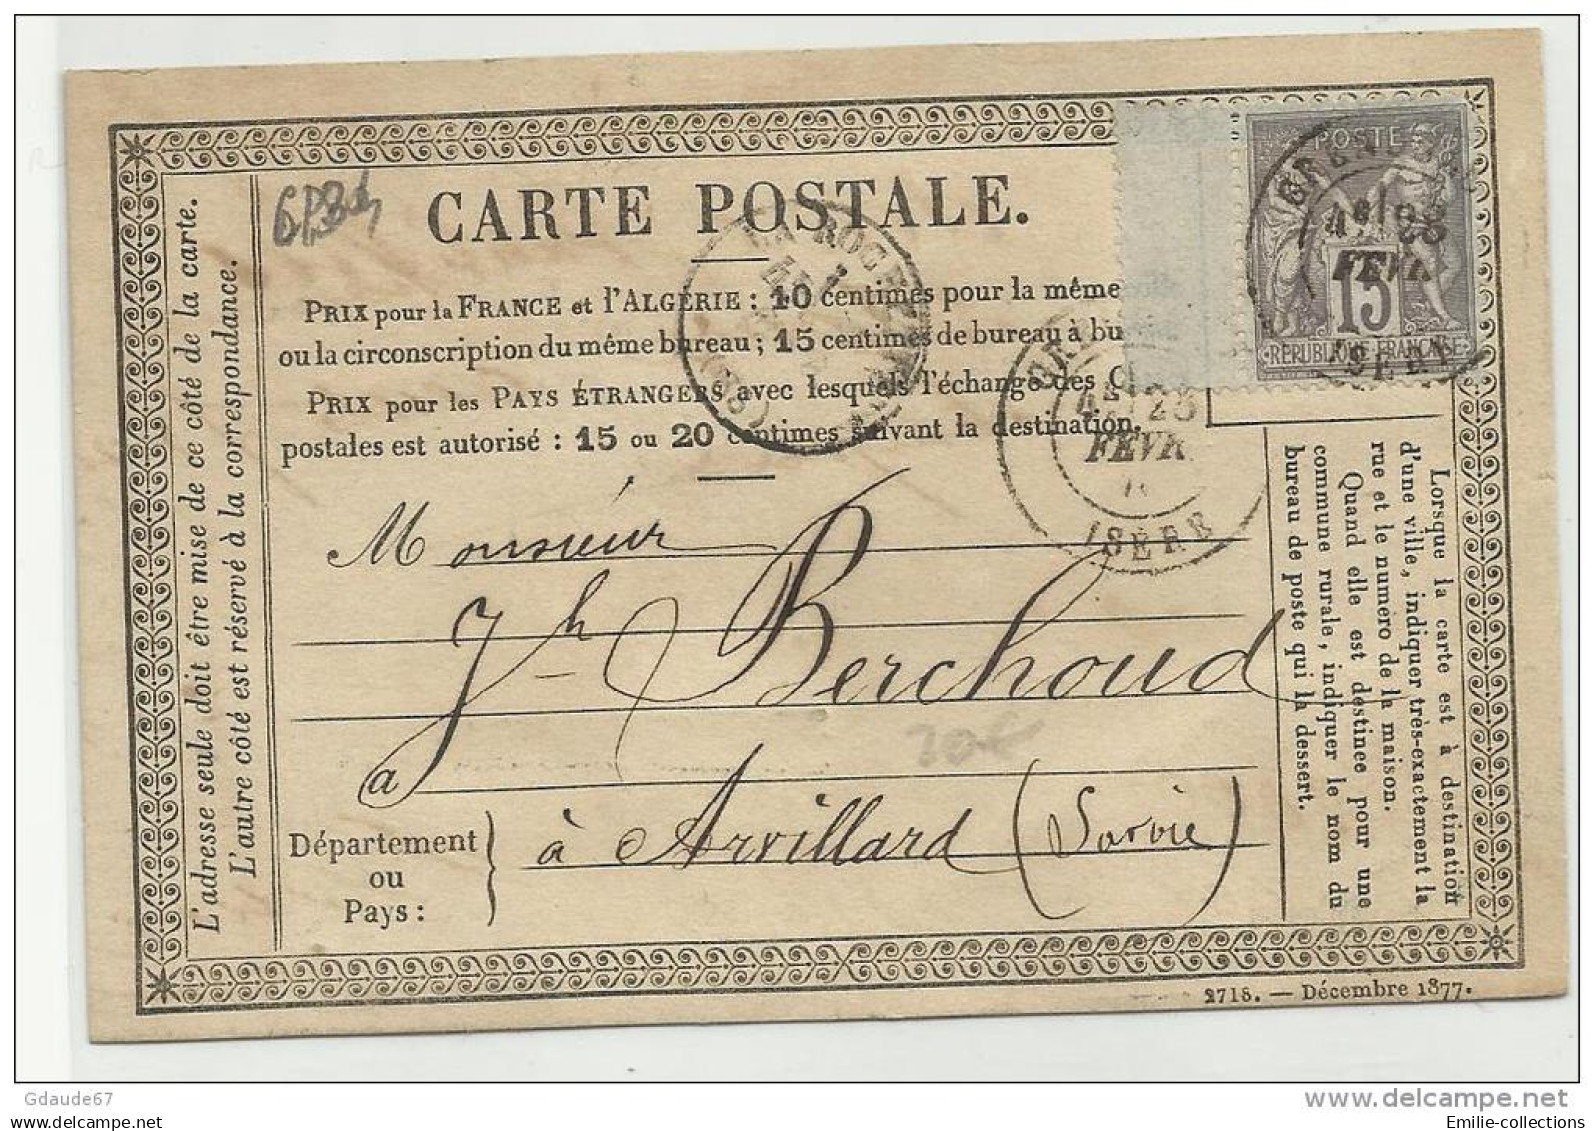 L'adresse seule doit être mise de ce côté de la carte.
L'autre côté est réservé à la correspondance.
CARTE POSTALE.
PRIX pour la FRANCE et l'ALGÉRIE : 10 centimes pour la même
ou la circonscription du même bureau ; 15 centimes de bureau à bu
PRIX pour les PAYS ÉTRANGERS avec lesquels l'échange des C
postales est autorisé : 15 ou 20 centimes suivant la destination.
POSTE
15
RÉPUBLIQUE FRANÇAISE
4E 25
FÉVR
ISÈRE
LA ROCHE
4E 25
FÉVR
ISÈRE
Monsieur
Jh Berchoud
a
20€
Département
ou
Pays :
à Arvillard (Savoie)
Lorsque la carte est à destination
d'une ville, indiquer très-exactement la
rue et le numéro de la maison.
Quand elle est destinée pour une
commune rurale, indiquer le nom du
bureau de poste qui la dessert.
2718. — Décembre 1877.
delcampe.net
Gdaude67
Emilie-collections